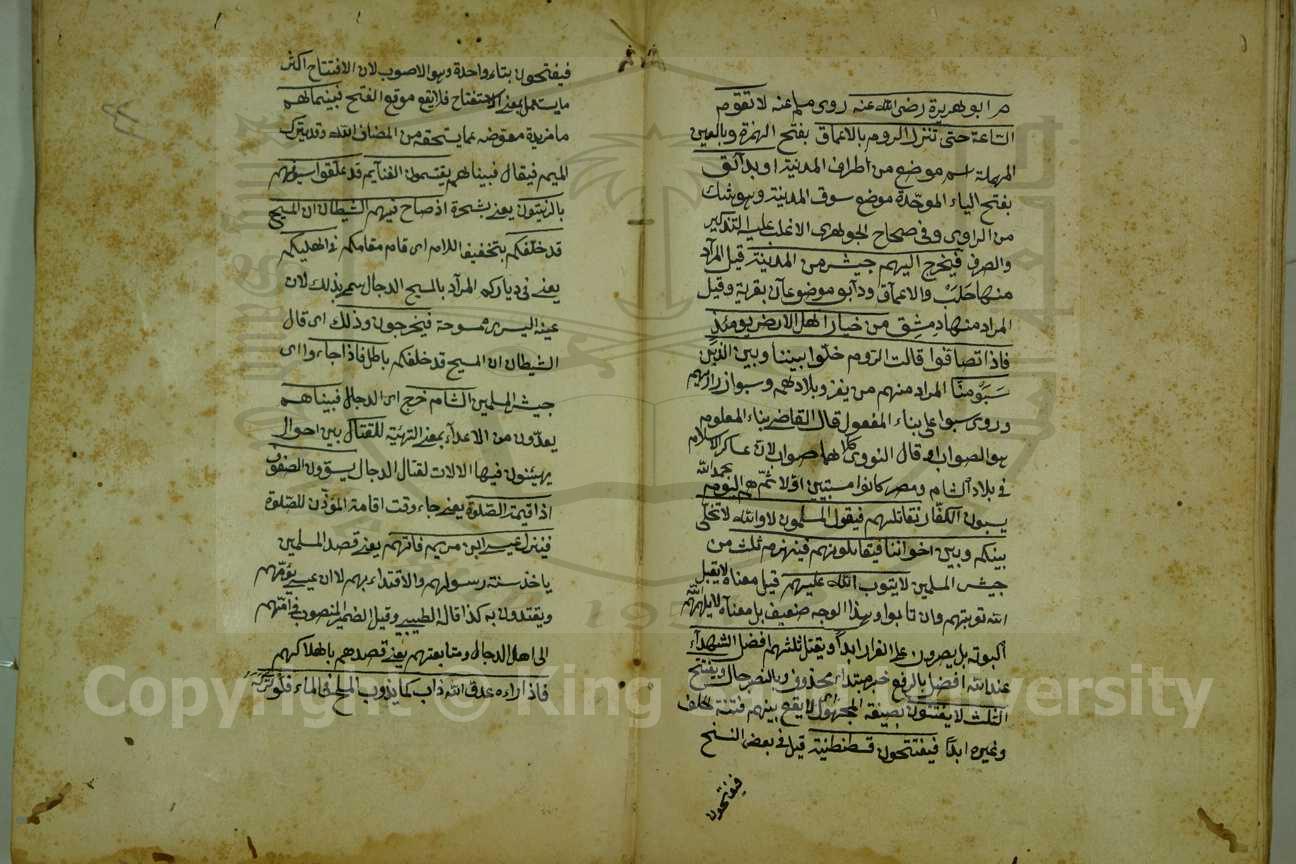 م ابو هريرة رضى الله عنه روى مسلم عنه لا تقوم
الساعة حتى تنزل الروم بالاعماق بفتح الهمزة وبالعين
المهملة اسم موضع من اطراف المدينة او بدابق
بفتح الباء الموحدة موضع سوق المدينة وهو شك
من الراوى وفى صحاح الجوهرى الاغلب عليه التذكير
والصرف فيخرج اليهم جيش من المدينة قيل المراد
منها حلب والاعماق ودابق موضوعان بقربة وقيل
المراد منها دمشق من خيار اهل الارض يومئذ
فاذا تصافوا قالت الروم خلوا بيننا وبين الذين
سبوا منا المراد منهم من يغزو بلادهم وسبوا ذراريهم
وروى سبوا على بناء المفعول قال القاضى بناء المعلوم
هو الصواب وقال النووى كلاهما صواب لان عساكر الاسلام
فى بلاد الشام ومصر كانوا مسبيين اولا ثم هم اليوم بحمد الله
يسبون الكفار نقاتلهم فيقول المسلمون لا والله لا نخلى
بينكم وبين اخواننا فيقاتلونهم فينهزم ثلث من
جيش المسلمين لا يتوب الله عليهم قيل معناه لا يقبل
الله توبتهم وان تابوا وهذا الوجه ضعيف بل معناه لا يلهمهم الله
التوبة بل يصرون على الفرار ابدا ويقتل ثلثهم افضل الشهداء
عند الله افضل بالرفع خبر مبتداء محذوف وبالنصب حال ويفتتح
الثلث لا يفتنون بصيغة المجهول لا يقع بينهم فتنة بخلف
وغيره ابدا فيفتتحون قسطنطنية قيل فى بعض النسخ
فيفتحون
فيفتحون بتاء واحدة وهو الاصوب لان الافتتاح اكثر
ما يستعمل بمعنى الاستفتاح فلا يقع موقع الفتح فبينما هم
ما مزيدة معوضة عما يستحقه من المضاف الله وقد يترك
الميم فيقال فبينا هم يقتسمون الغنائم قد علقوا سيوفهم
بالزيتون يعنى بشجرة اذ صاح فيهم الشيطان ان المسيح
قد خلفكم بتخفيف اللام اى قام مقامكم فى اهليكم
يعنى فى دياركم المراد بالمسيح الدجال سمى بذلك لان
عينه اليسرى ممسوحة فيخرجون وذلك اى قال
الشيطان ان المسيح قد خلفكم باطل فاذا جاءوا اى
جيش المسلمين الشام خرج اى الدجال فبينا هم
يعدون من الاعداء بمعنى التهيئة للقتال بين احوال
يهيئون فيها الالات لقتال الدجال يسوون الصفوف
اذا قيمت الصلوة يعنى جاء وقت اقامة المؤذن للصلوة
فينزل عيسى ابن مريم فامهم يعنى قصد المسلمين
ياخذ سنة رسولهم والاقتداء بهم لا ان عيسى يؤمهم
ويقتدون به كذا قال الطيبى وقيل الضمير المنصوب فى امهم
الى اهل الدجال ومتابعتهم يعنى قصدهم باهلاكهم
فاذا راه عدو الله ذاب كما يذوب الملح فى الماء فلو تركه
Copyright © King Saud University
1957